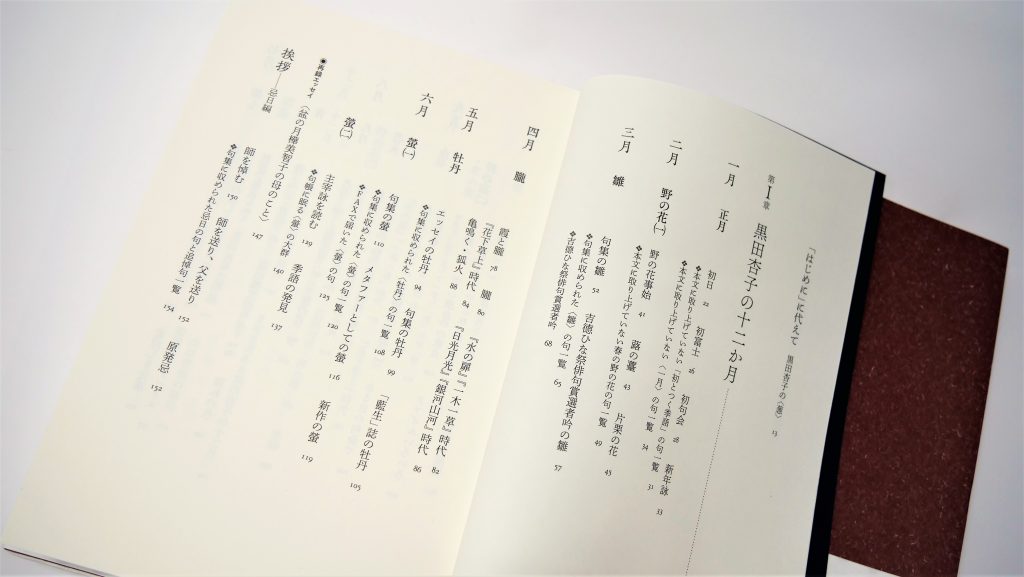 「はじめに」に代えて 黒田杏子の〈雛〉 13
第Ⅰ章 黒田杏子の十二か月
一月 正月
初日 22 初富士 26 初句会 28 新年詠 33
❖本文に取り上げていない「初とつく季語」の句一覧 31
❖本文に取り上げていない〈一月〉の句一覧 34
二月 野の花(一)
野の花事始 41 蕗の薹 43 片栗の花 45
❖本文に取り上げていない春の野の花の句一覧 49
三月 雛
句集の雛 52 吉徳ひな祭俳句賞選者吟の雛 57
❖句集に収められた〈雛〉の句一覧 65
❖吉徳ひな祭俳句賞選者吟 68
四月 朧
霞と朧 78 朧 80 『水の扉』『一木一草』時代 82
『花下草上』時代 84 『日光月光』『銀河山河』時代 86
亀鳴く・狐火 88
五月 牡丹
エッセイの牡丹 94 句集の牡丹 99 「藍生」誌の牡丹 105
❖句集に収められた〈牡丹〉の句一覧 108
六月 螢(一)
句集の螢 110 メタファーとしての螢 116 新作の螢 119
❖句集に収められた〈螢〉の句一覧 120
❖FAXで届いた〈螢〉の句 125
螢(二)
主宰詠を読む 129 季語の発見 137
❖句帳に眠る〈螢〉の大群 140
◉再録エッセイ 〈盆の月樺美智子の母のこと〉 147
挨拶——忌日編
師を悼む 150 師を送り、父を送り 152 原発忌 152
❖句集に収められた忌日の句と追悼句一覧 154